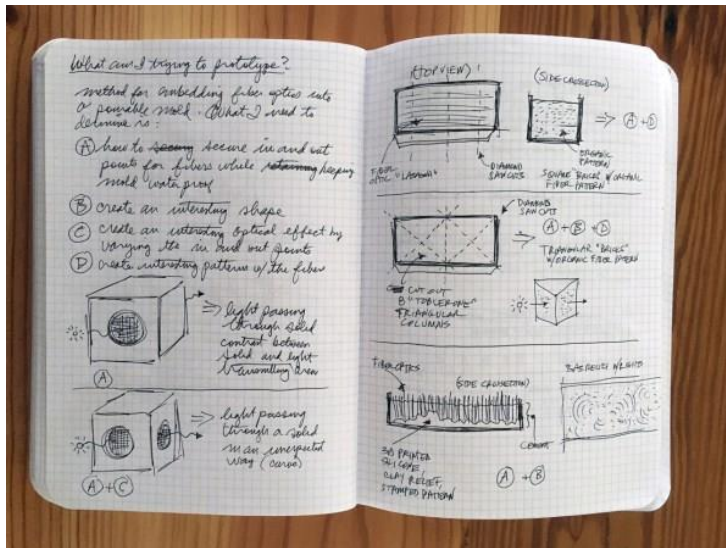 What am I trying to prototype?
method for embedding fiber optics into
a pourable mold. What I need to
determine is:
A how to secure in and out
points for fibers while keeping
mold waterproof
B create an interesting shape
C create an interesting optical effect by
varying its in and out points
D create interesting patterns w/ the fiber
⇒ light passing
through solid
contrast between
solid and light
transmitting area
A
⇒ light passing
through a solid
in an unexpected
way (curve)
A + C
(TOP VIEW)
(SIDE CROSSECTION)
⇒ A + D
FIBER
OPTIC "LASAGNA"
DIAMOND
SAW CUTS
ORGANIC
PATTERN
SQUARE "BRICKS" W/ ORGANIC
FIBER PATTERN
DIAMOND
SAW CUTS
⇒ A + B + D
TRIANGULAR "BRICKS"
W/ ORGANIC FIBER PATTERN
CUT OUT
8 "TOBLERONE"
TRIANGULAR
COLUMNS
FIBER OPTICS
(SIDE CROSSECTION)
BAS RELIEF W/ LIGHTS
CEMENT
3D PRINTED
SILICONE,
CLAY RELIEF,
STAMPED PATTERN
A + B